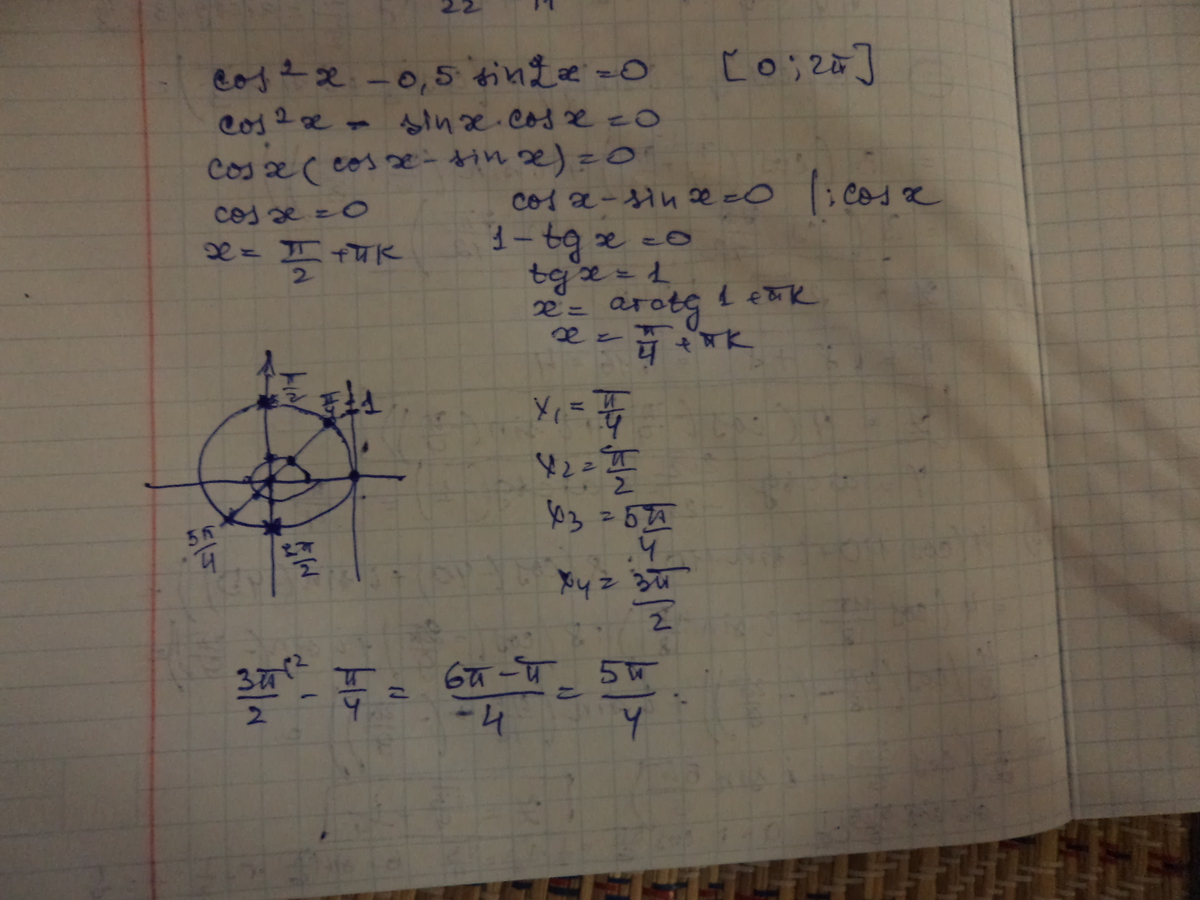 22 11
cos²x - 0,5 sin2x = 0 [0; 2π]
cos²x - sinx·cosx = 0
cosx(cosx - sinx) = 0
cosx = 0 cosx - sinx = 0 |:cosx
x = π/2 + πk 1 - tgx = 0
tgx = 1
x = arctg 1 + πk
x = π/4 + πk
π/2 π/4 1
x₁ = π/4
x₂ = π/2
5π/4 x₃ = 5π/4
π/2
x₄ = 3π/2
3π/2 ⁽² - π/4 = 6π - π/4 = 5π/4